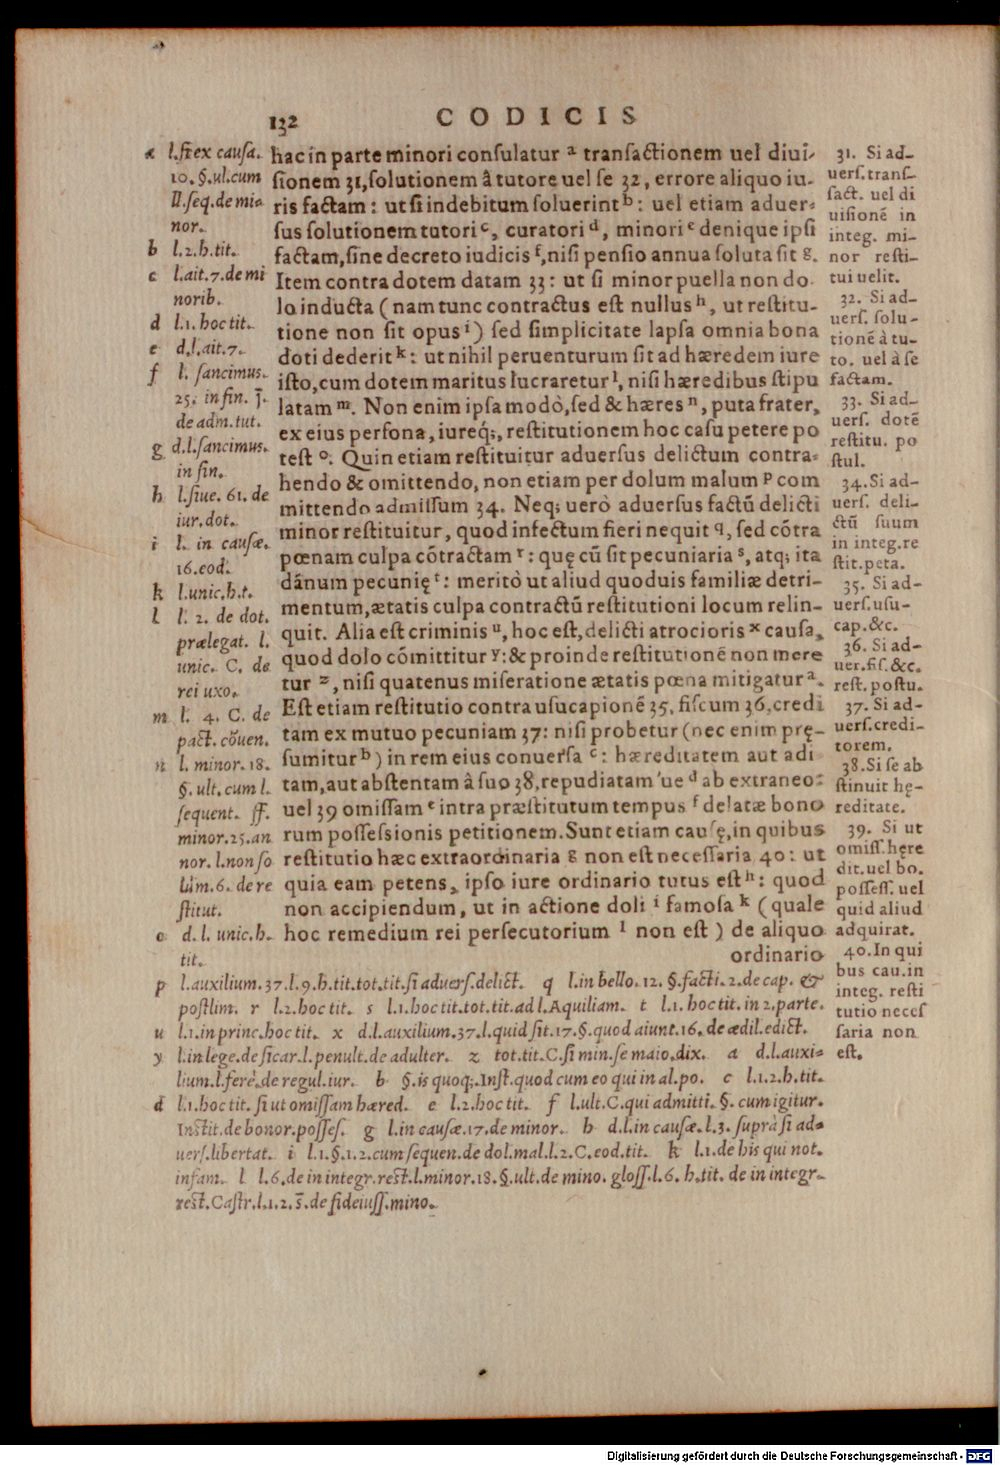 132
CODICIS
a l. si ex causa.
10. §. ul. cum
ll. seq. de mi-
nor.
b l. 2. h. tit.
c l. ait. 7. de mi
norib.
d l. 1. hoc tit.
e d. l. ait. 7.
f l. sancimus.
25. in fin. j̃.
de adm. tut.
g d. l. sancimus.
in fin.
h l. siue. 61. de
iur. dot.
i l. in causæ.
16. eod.
k l. unic. h. t.
l l. 2. de dot.
prælegat. l.
unic. C. de
rei uxo.
m l. 4. C. de
pact. cõuen.
n l. minor. 18.
§. ult. cum l.
sequent. ff.
minor. 25. an
nor. l. non so
lùm. 6. de re
stitut.
o d. l. unic. h.
tit.
hac in parte minori consulatur a transactionem uel diui-
sionem 31, solutionem â tutore uel se 32, errore aliquo iu-
ris factam: ut si indebitum soluerint b: uel etiam aduer-
sus solutionem tutori c, curatori d, minori e denique ipsi
factam, sine decreto iudicis f, nisi pensio annua soluta sit g.
Item contra dotem datam 33: ut si minor puella non do
lo inducta (nam tunc contractus est nullus h, ut restitu-
tione non sit opus i) sed simplicitate lapsa omnia bona
doti dederit k: ut nihil peruenturum sit ad hæredem iure
isto, cum dotem maritus lucraretur l, nisi hæredibus stipu
latam m. Non enim ipsa modò, sed & hæres n, puta frater,
ex eius persona, iureq́;, restitutionem hoc casu petere po
test o. Quin etiam restituitur aduersus delictum contra-
hendo & omittendo, non etiam per dolum malum p com
mittendo admissum 34. Neq; uerò aduersus factũ delicti
minor restituitur, quod infectum fieri nequit q, sed cõtra
pœnam culpa cõtractam r: quę cũ sit pecuniaria s, atq; ita
dãnum pecunię t: meritò ut aliud quoduis familiæ detri-
mentum, ætatis culpa contractũ restitutioni locum relin-
quit. Alia est criminis u, hoc est, delicti atrocioris x causa,
quod dolo cõmittitur y: & proinde restitutionẽ non mere
tur z, nisi quatenus miseratione ætatis pœna mitigatur a.
Est etiam restitutio contra usucapionẽ 35, fiscum 36, credi
tam ex mutuo pecuniam 37: nisi probetur (nec enim prę-
sumitur b) in rem eius conuersa c: hæreditatem aut adi
tam, aut abstentam â suo 38, repudiatam 'ue d ab extraneo:
uel 39 omissam e intra præstitutum tempus f delatæ bono
rum possessionis petitionem. Sunt etiam causę, in quibus
restitutio hæc extraordinaria g non est necessaria 40: ut
quia eam petens, ipso iure ordinario tutus est h: quod
non accipiendum, ut in actione doli i famosa k (quale
hoc remedium rei persecutorium l non est) de aliquo
ordinario
31. Si ad-
uers. trans-
fact. uel di
uisionẽ in
integ. mi-
nor resti-
tui uelit.
32. Si ad-
uers. solu-
tionẽ à tu-
to. uel à se
factam.
33. Si ad-
uers. dotẽ
restitu. po
stul.
34. Si ad-
uers. deli-
ctũ suum
in integ. re
stit. peta.
35. Si ad-
uers. usu-
cap. &c.
36. Si ad-
uer. fis. &c.
rest. postu.
37. Si ad-
uers. credi-
torem.
38. Si se ab
stinuit hę-
reditate.
39. Si ut
omiss. hęre
dit. uel bo.
possess. uel
quid aliud
adquirat.
40. In qui
bus cau. in
integ. resti
tutio necess
saria non
est.
p l. auxilium. 37. l. 9. h. tit. tot. tit. si aduers. delict. q l. in bello. 12. §. facti. 2. de cap. &
postlim. r l. 2. hoc tit. s l. 1. hoc tit. tot. tit. ad l. Aquiliam. t l. 1. hoc tit. in 2. parte.
u l. 1. in princ. hoc tit. x d. l. auxilium. 37. l. quid sit. 17. §. quod aiunt. 16. de ædil. edict.
y l. in lege. de sicar. l. penult. de adulter. z tot. tit. C. si min. se maio. dix. a d. l. auxi-
lium. l. ferè. de regul. iur. b §. is quoq;. Inst. quod cum eo qui in al. po. c l. 1. 2. h. tit.
d l. 1. hoc tit. si ut omissam hæred. e l. 2. hoc tit. f l. ult. C. qui admitti. §. cum igitur.
Instit. de bonor. posses. g l. in causæ. 17. de minor. h d. l. in causæ. l. 3. suprà si ad-
uers. libertat. i l. 1. §. 1. 2. cum sequen. de dol. mal. l. 2. C. eod. tit. k l. 1. de his qui not.
infam. l l. 6. de in integr. rest. l. minor. 18. §. ult. de mino. gloss. l. 6. h. tit. de in integr.
rest. Castr. l. 1. 2. s̃. de fideiuss. mino.
Digitalisierung gefördert durch die Deutsche Forschungsgemeinschaft - DFG